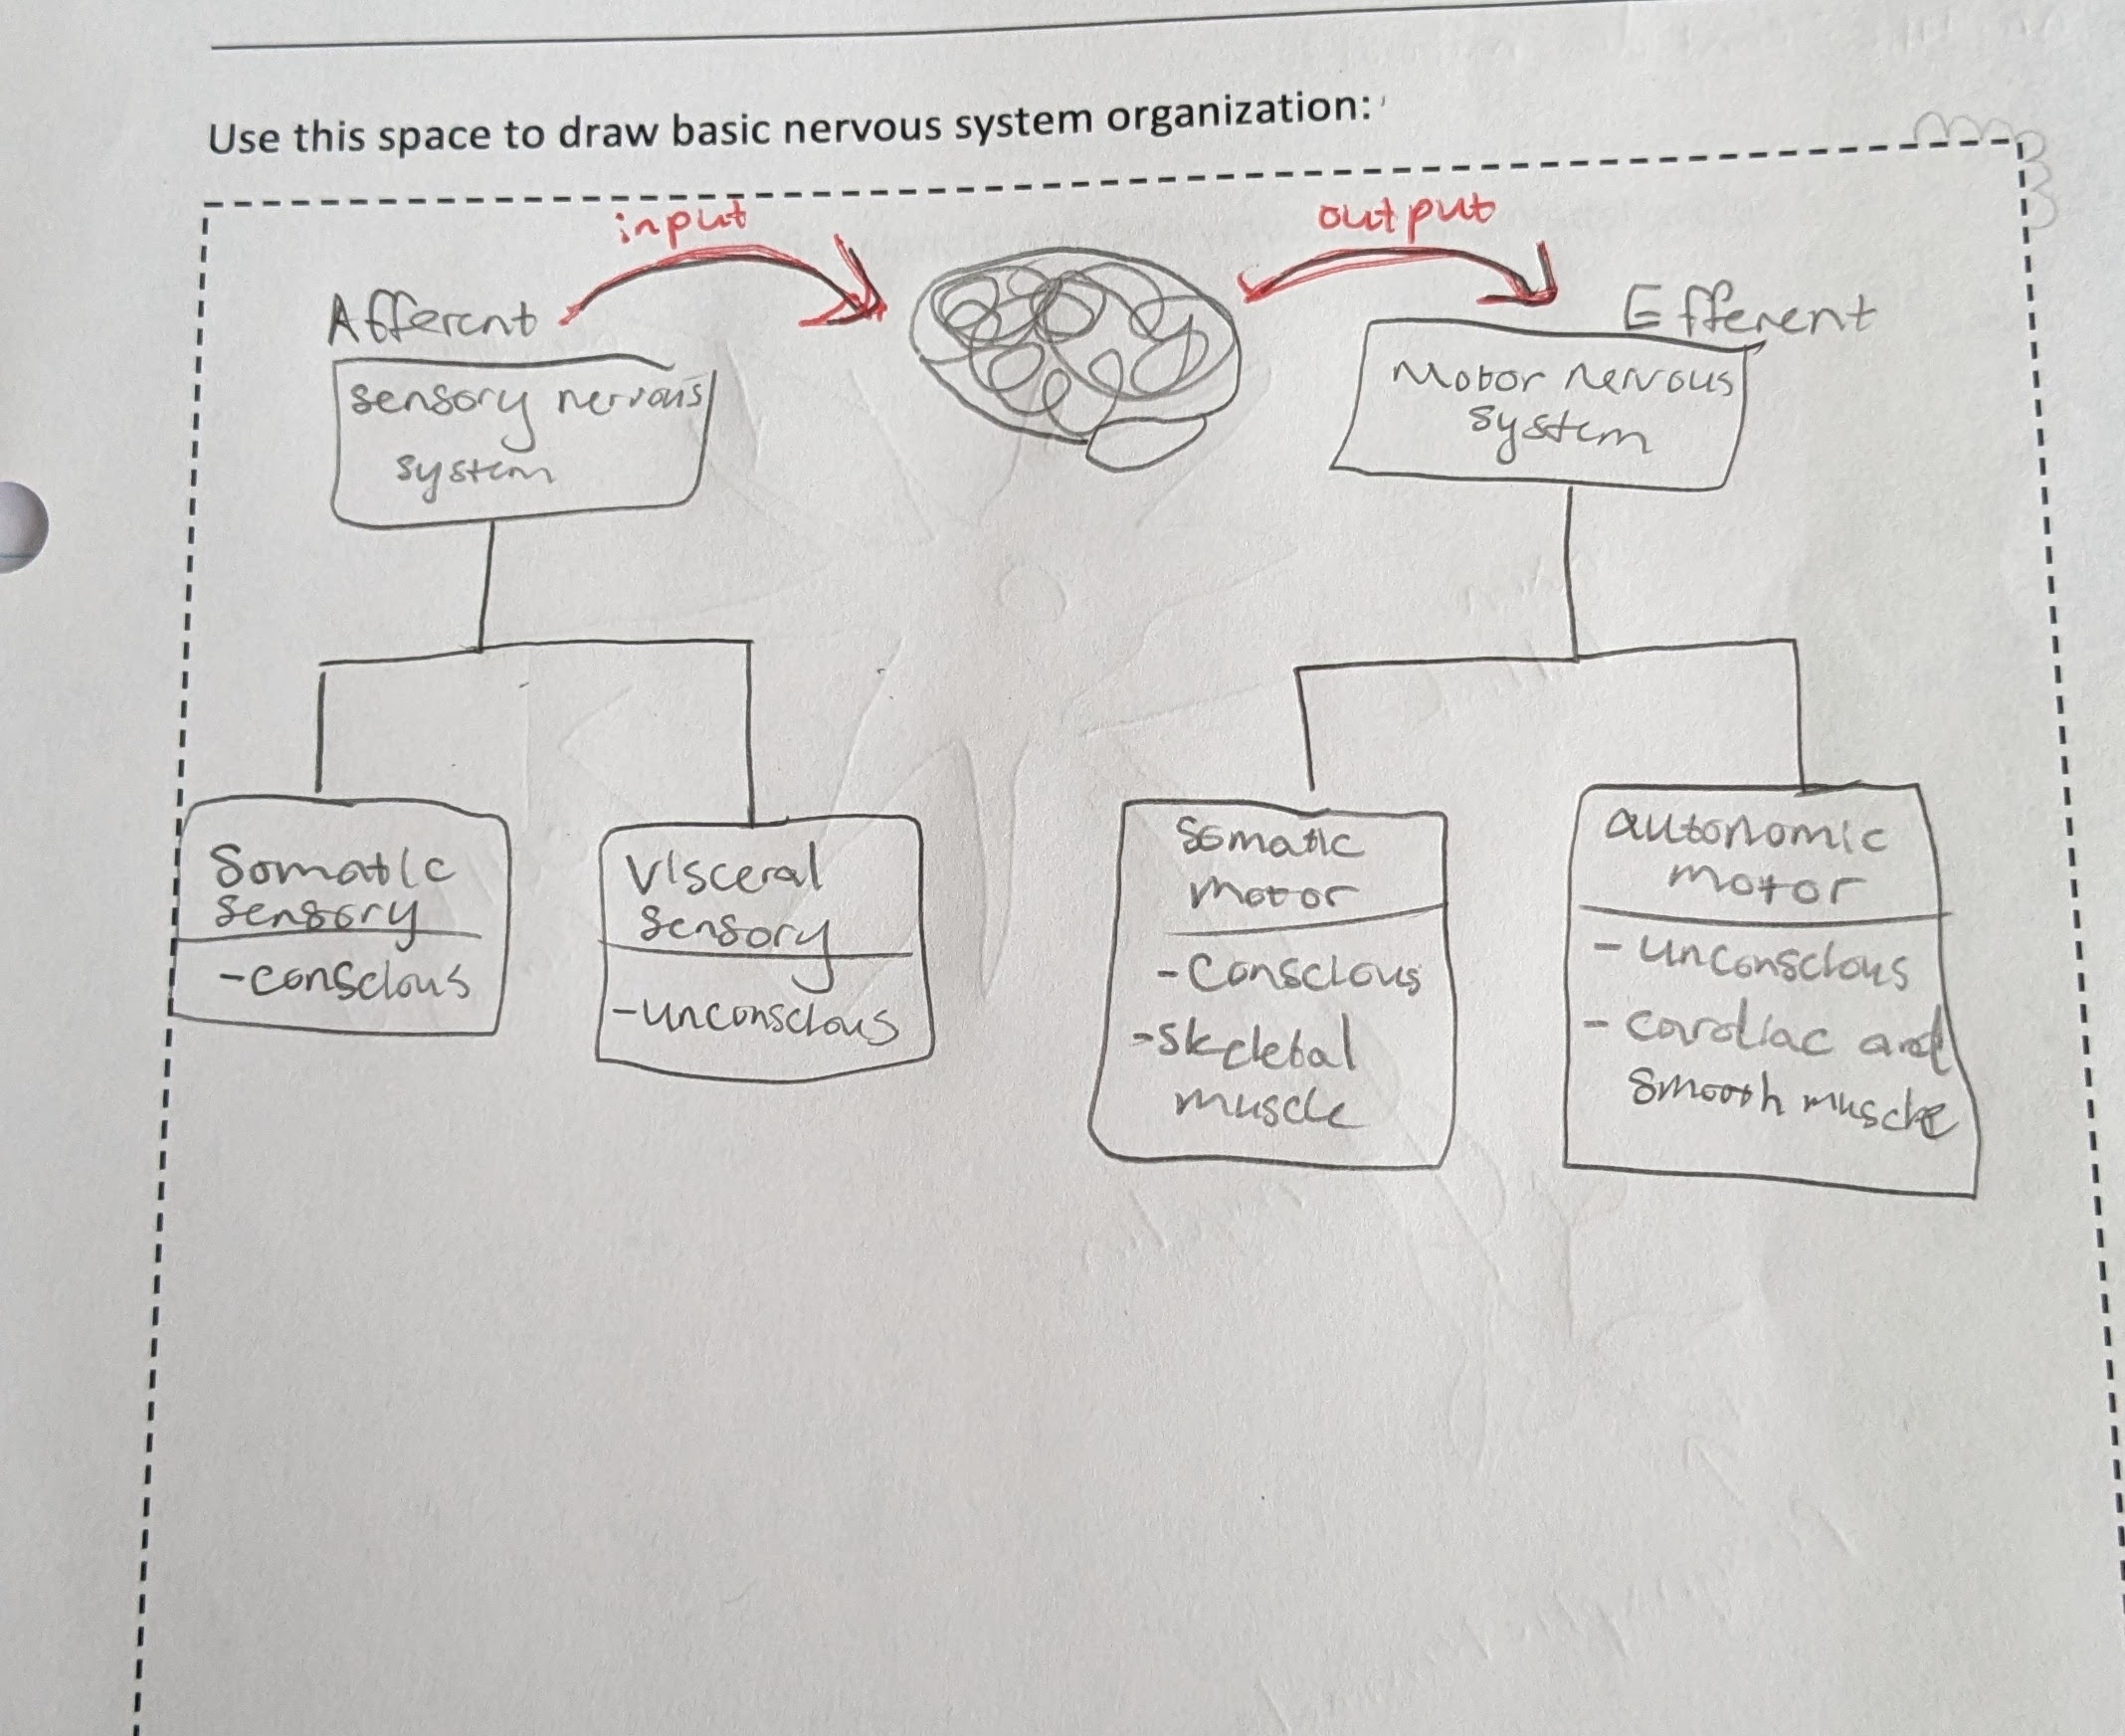 Use this space to draw basic nervous system organization:
input
output
Afferent
Efferent
sensory nervous
system
Motor nervous
system
Somatic
sensory
-conscious
Visceral
sensory
-unconscious
Somatic
motor
-Conscious
-skeletal
muscle
autonomic
motor
- unconscious
- cardiac and
smooth muscle